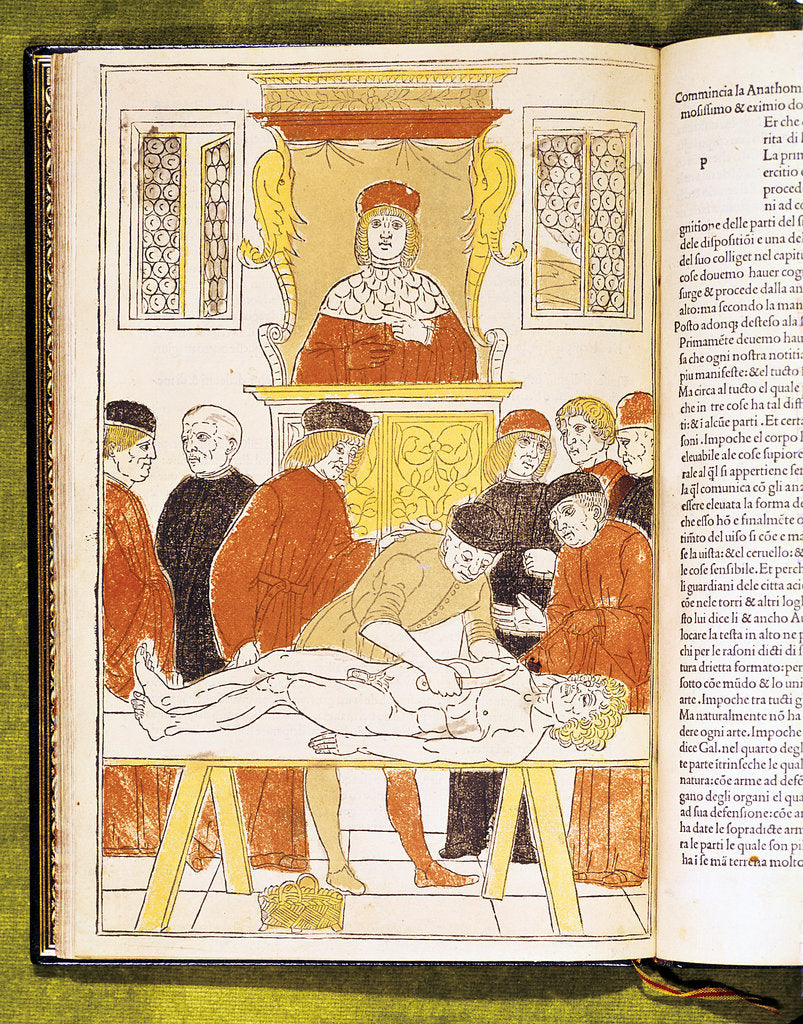 Commincia la Anathomi
mosissimo & eximio do
Er che
rita di
La prim
ercitio
proced
ni ad co
P
gnitione delle parti del
dele dispositiõi e una del
del suo colliget nel capit
cose douemo hauer cog
surge & procede dalla an
alto: ma secondo la man
Posto adonq; desteso ala
Primamẽte deuemo hau
sa che ogni nostra notiti
piu manifeste: & el tucto
Ma circa al tucto el quale
che in tre cose ha tal diff
ti: & i alcũe parti. Et cert
soni. Impoche el corpo
eleuabile ale cose superio
rale al q̃l si appertiene ser
la q̃l comunica cõ gli an
essere eleuata la forma de
che esso hõ e finalmẽte
timẽto del uiso si cõe e ma
se la uista: & el ceruello: &
le cose sensibile. Et perch
li guardiani dele citta aci
cõe nele torri & altri logh
sto lui dice li & ancho Au
locare la testa in alto ne
chi per le rasoni dicti di
tura drietta formato: per
sotto cõe mũdo & lo uni
arte. Impoche tra tucti
Ma naturalmente nõ ha
dere ogni arte. Impoche
dice Gal. nel quarto degl
te parte itrinseche le qual
natura: cõe arme ad defẽ
gano degli organi el qua
ad sua defensione: cõe
ha date le sopradicte arm
ra le parti le quale son pi
ha i se mã terrena molto